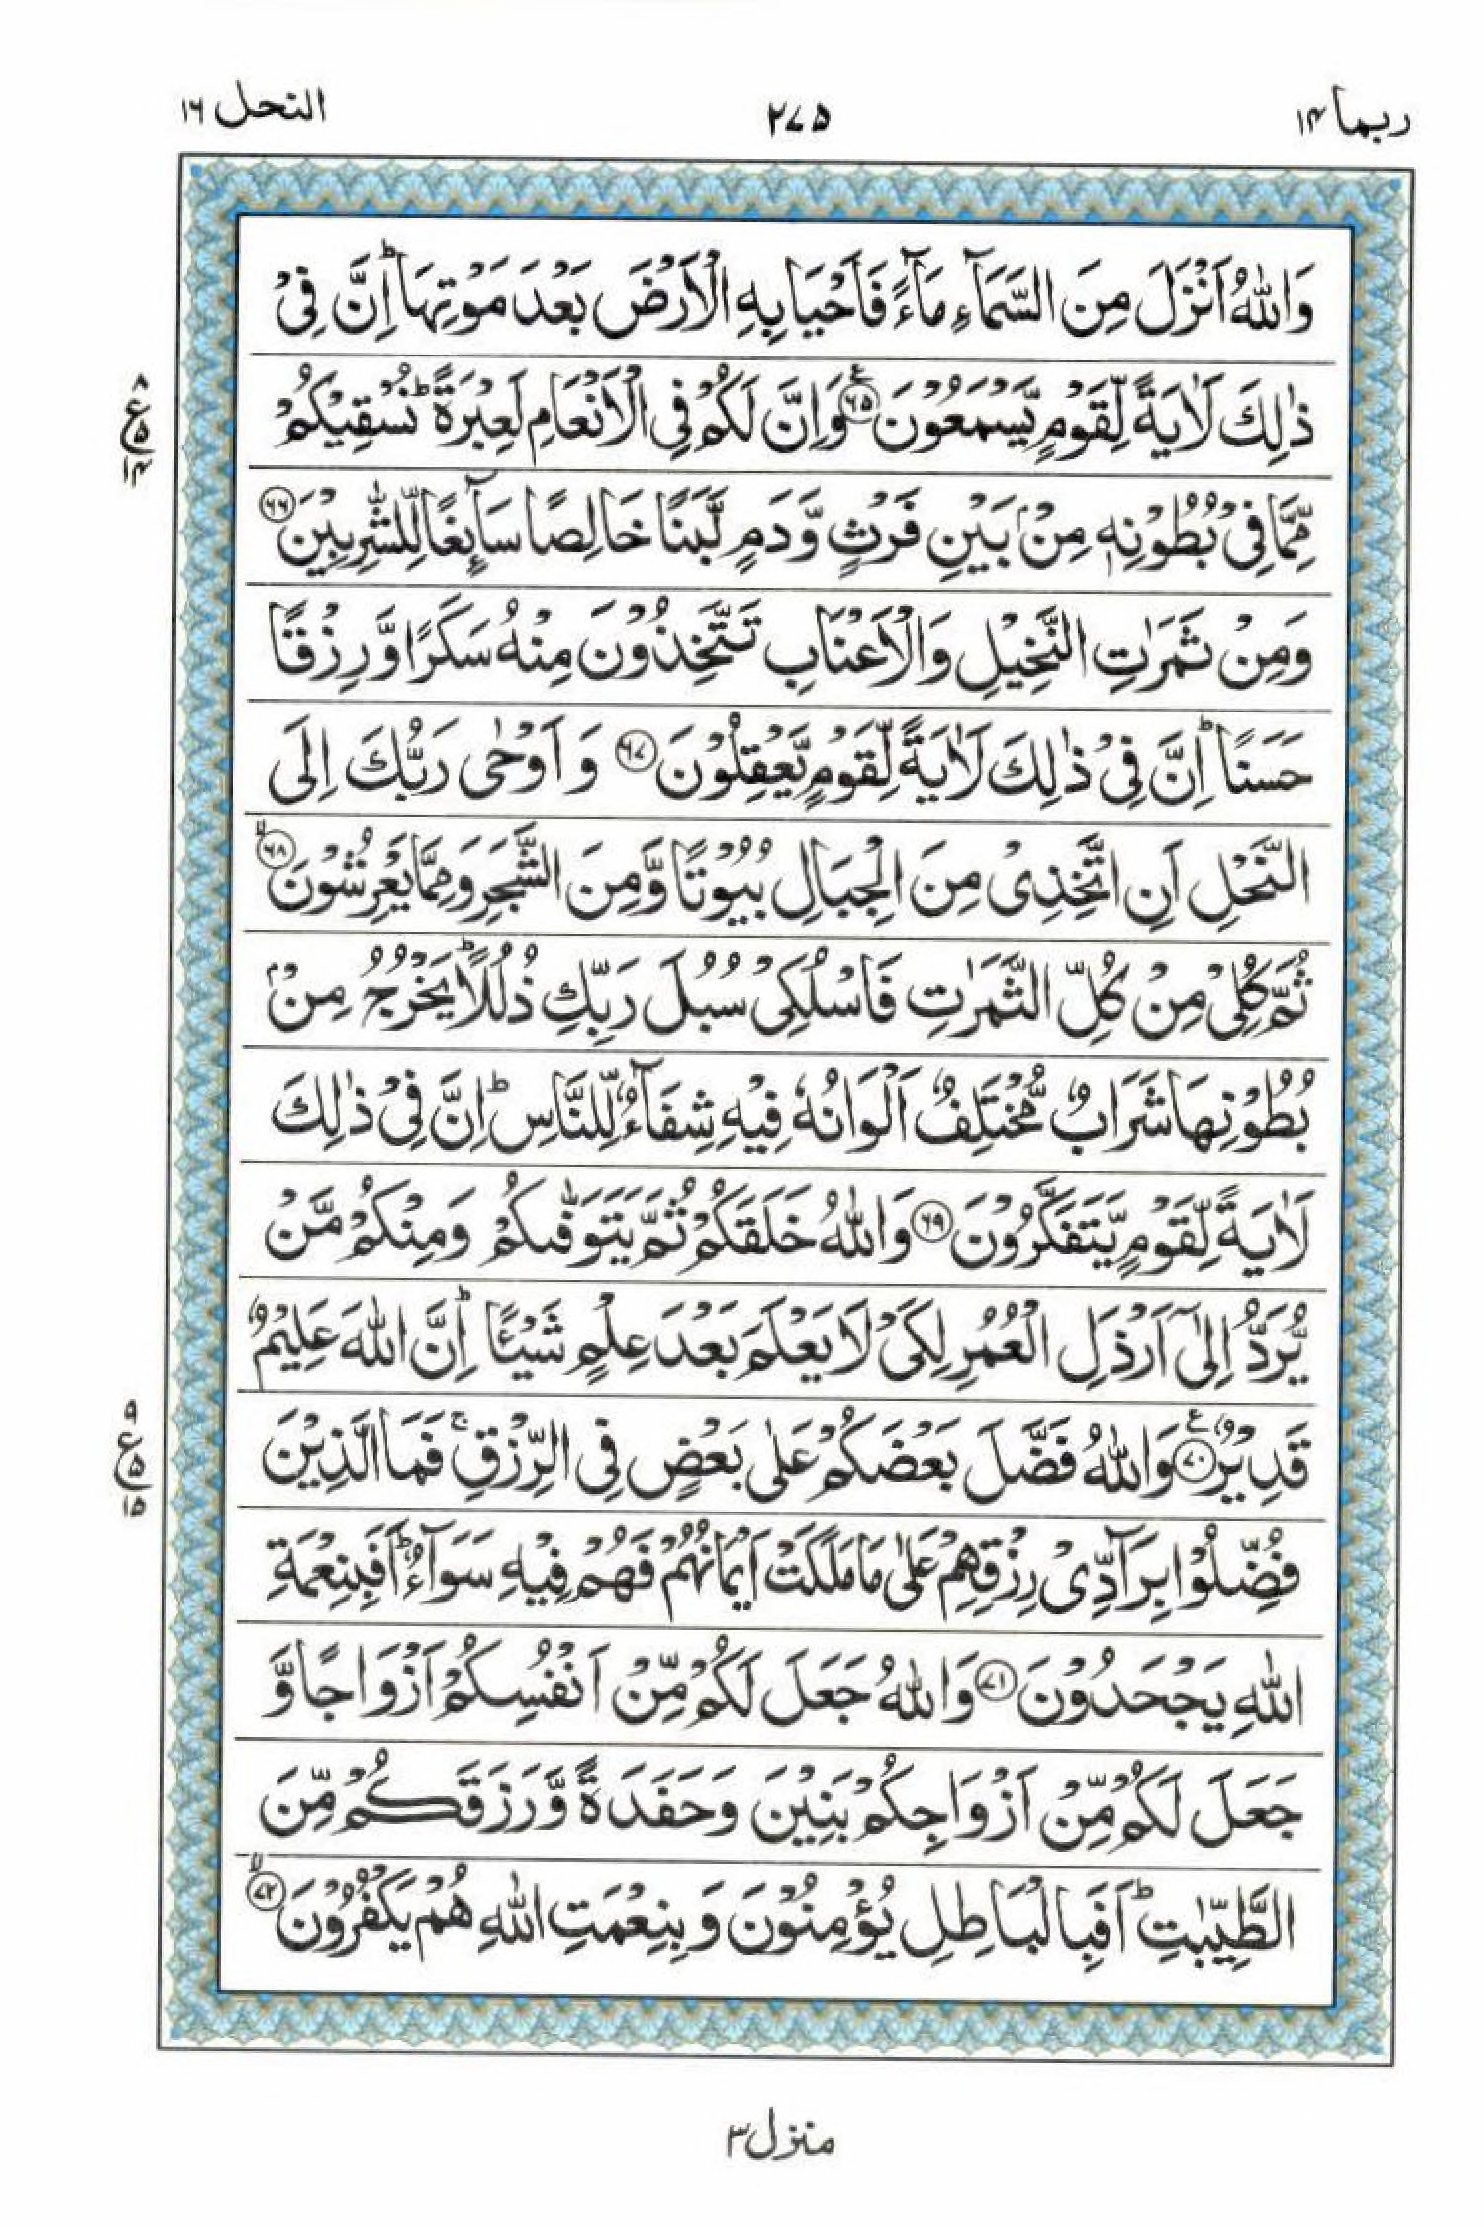 ربما ١٤
٢٧٥
النحل ١٦
وَاللّٰهُ اَنْزَلَ مِنَ السَّمَآءِ مَآءً فَاَحْيَا بِهِ الْاَرْضَ بَعْدَ مَوْتِهَا ؕ اِنَّ فِیْ
ذٰلِكَ لَاٰيَةً لِّقَوْمٍ يَّسْمَعُوْنَ ﴿٦٥﴾ ع وَاِنَّ لَكُمْ فِی الْاَنْعَامِ لَعِبْرَةً ؕ نُسْقِيْكُمْ
٨
ع
٥
١٤
مِّمَّا فِیْ بُطُوْنِهٖ مِنْۢ بَيْنِ فَرْثٍ وَّدَمٍ لَّبَنًا خَالِصًا سَآئِغًا لِّلشّٰرِبِيْنَ ﴿٦٦﴾
وَمِنْ ثَمَرٰتِ النَّخِيْلِ وَالْاَعْنَابِ تَتَّخِذُوْنَ مِنْهُ سَكَرًا وَّرِزْقًا
حَسَنًا ؕ اِنَّ فِیْ ذٰلِكَ لَاٰيَةً لِّقَوْمٍ يَّعْقِلُوْنَ ﴿٦٧﴾ وَاَوْحٰی رَبُّكَ اِلَی
النَّحْلِ اَنِ اتَّخِذِیْ مِنَ الْجِبَالِ بُيُوْتًا وَّمِنَ الشَّجَرِ وَمِمَّا يَعْرِشُوْنَ ﴿٦٨﴾ ۙ
ثُمَّ كُلِیْ مِنْ كُلِّ الثَّمَرٰتِ فَاسْلُكِیْ سُبُلَ رَبِّكِ ذُلُلًا ؕ يَخْرُجُ مِنْۢ
بُطُوْنِهَا شَرَابٌ مُّخْتَلِفٌ اَلْوَانُهٗ فِيْهِ شِفَآءٌ لِّلنَّاسِ ؕ اِنَّ فِیْ ذٰلِكَ
لَاٰيَةً لِّقَوْمٍ يَّتَفَكَّرُوْنَ ﴿٦٩﴾ وَاللّٰهُ خَلَقَكُمْ ثُمَّ يَتَوَفّٰىكُمْ وَمِنْكُمْ مَّنْ
يُّرَدُّ اِلٰۤی اَرْذَلِ الْعُمُرِ لِكَیْ لَا يَعْلَمَ بَعْدَ عِلْمٍ شَيْـًٔا ؕ اِنَّ اللّٰهَ عَلِيْمٌ
قَدِيْرٌ ﴿٧٠﴾ ع وَاللّٰهُ فَضَّلَ بَعْضَكُمْ عَلٰی بَعْضٍ فِی الرِّزْقِ ۚ فَمَا الَّذِيْنَ
٩
ع
٥
١٥
فُضِّلُوْا بِرَآدِّیْ رِزْقِهِمْ عَلٰی مَا مَلَكَتْ اَيْمَانُهُمْ فَهُمْ فِيْهِ سَوَآءٌ ؕ اَفَبِنِعْمَةِ
اللّٰهِ يَجْحَدُوْنَ ﴿٧١﴾ وَاللّٰهُ جَعَلَ لَكُمْ مِّنْ اَنْفُسِكُمْ اَزْوَاجًا وَّ
جَعَلَ لَكُمْ مِّنْ اَزْوَاجِكُمْ بَنِيْنَ وَحَفَدَةً وَّرَزَقَكُمْ مِّنَ
الطَّيِّبٰتِ ؕ اَفَبِالْبَاطِلِ يُؤْمِنُوْنَ وَبِنِعْمَتِ اللّٰهِ هُمْ يَكْفُرُوْنَ ﴿٧٢﴾ ۙ
منزل ٣